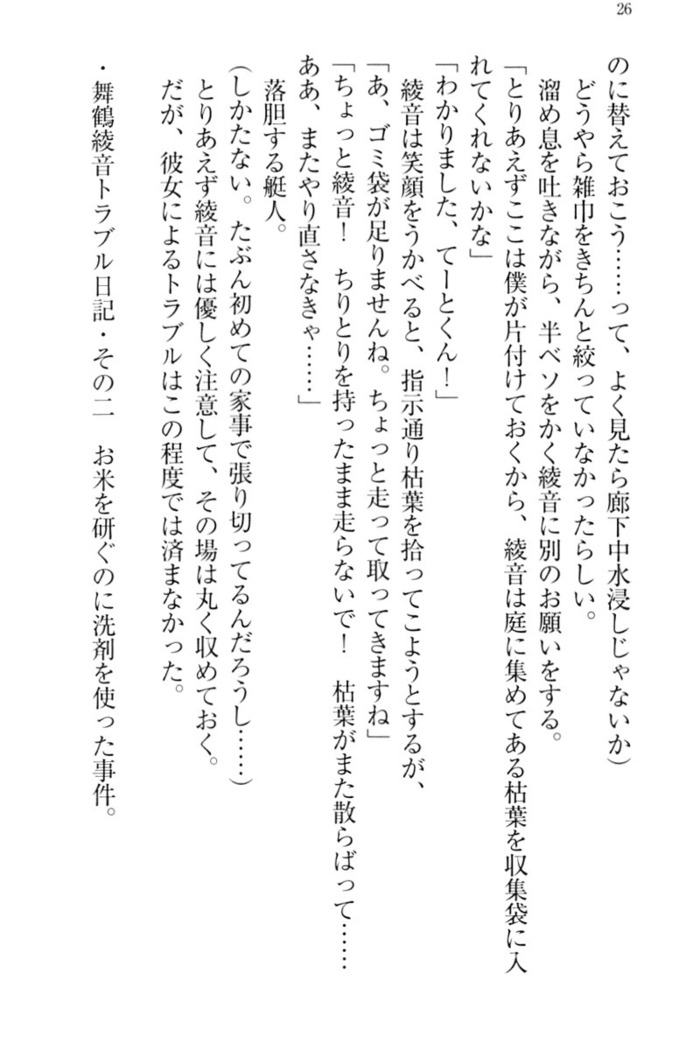 26
のに替えておこう……って、よく見たら廊下中水浸しじゃないか)
どうやら雑巾をきちんと絞っていなかったらしい。
溜め息を吐きながら、半ベソをかく綾音に別のお願いをする。
「とりあえずここは僕が片付けておくから、綾音は庭に集めてある枯葉を収集袋に入
れてくれないかな」
「わかりました、てーとくん！」
綾音は笑顔をうかべると、指示通り枯葉を拾ってこようとするが、
「あ、ゴミ袋が足りませんね。ちょっと走って取ってきますね」
「ちょっと綾音！　ちりとりを持ったまま走らないで！　枯葉がまた散らばって……
ああ、またやり直さなきゃ……」
落胆する艇人。
(しかたない。たぶん初めての家事で張り切ってるんだろうし……)
とりあえず綾音には優しく注意して、その場は丸く収めておく。
だが、彼女によるトラブルはこの程度では済まなかった。
・舞鶴綾音トラブル日記・その二　お米を研ぐのに洗剤を使った事件。